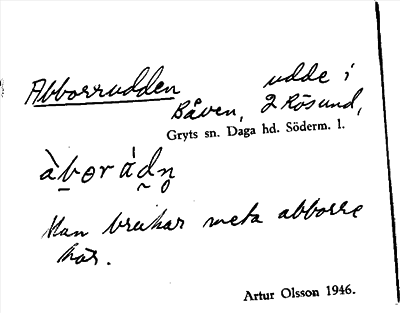 Abborrudden udde i
Båven, 2 Rösund,
Gryts sn. Daga hd. Söderm. l.
Man brukar meta abborre
här.
Artur Olsson 1946.